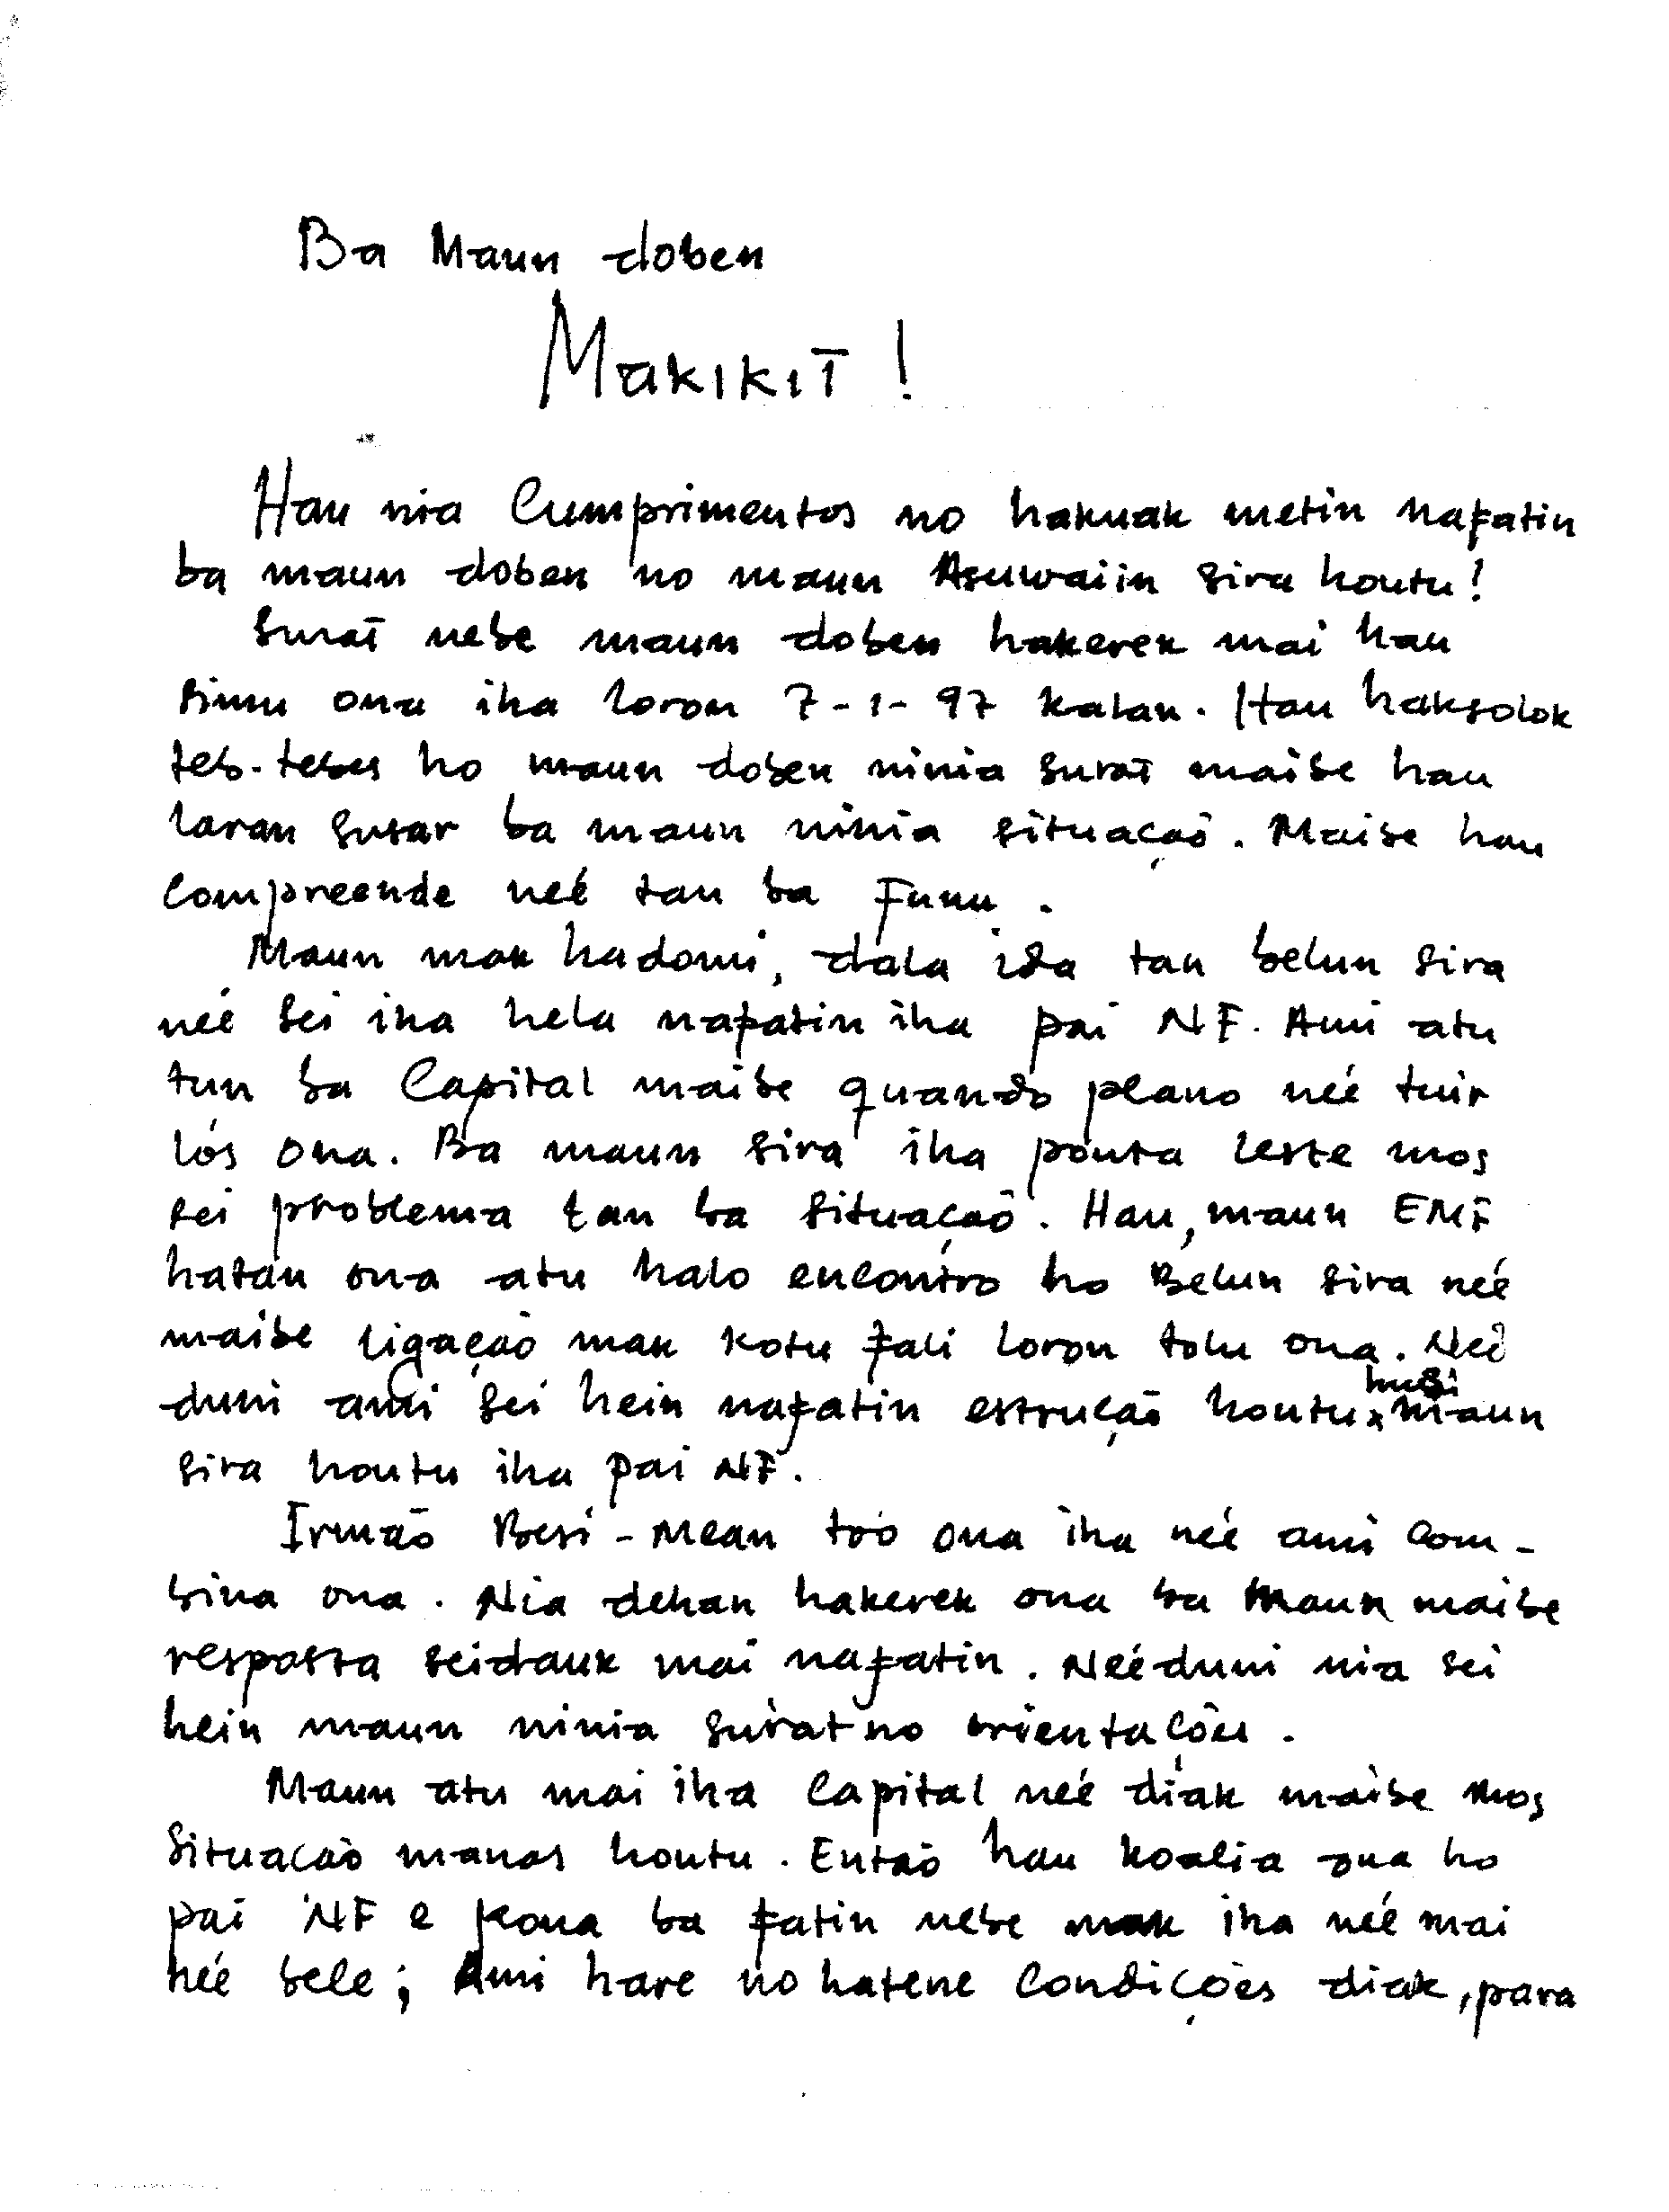 Ba Maun doben
Makikit !
Hau nia Cumprimentos no hakuak metin nafatin
ba maun doben no maun Asuwaiin sira hontu!
Surat nebe maun doben hakerek mai hau
simu ona iha loron 7-1-97 kalan. Hau haksolok
teb-tebes ho maun doben ninia surat maibe hau
laran susar ba maun ninia situação. Maibe hau
compreende neé tan ba Funu.
Maun mak hadomi, dala ida tan belun sira
neé sei iha hela nafatin iha pai NF. Ami atu
tun ba Capital maibe quando plano neé tuir
lós ona. Ba maun sira iha ponta leste mos
sei problema tan ba situação. Hau, maun EMF
hatán ona atu halo encontro ho Belun sira neé
maibe ligação mak kotu fali loron tolu ona. Neé
duni ami sei hein nafatin estrução hontu x husi maun
sira hontu iha pai NF.
Irmão Besi-Mean toó ona iha neé ami com-
bina ona. Nia dehan hakerek ona ba Maun maibe
resposta seidauk mai nafatin. Neéduni nia sei
hein maun ninia surat no orientações.
Maun atu mai iha Capital neé diak maibe mos
Situacão manas hontu. Então hau koalia ona ho
pai NF e kona ba fatin nebe mak iha neé mai
neé bele; Ami hare no hatene Condições diak, para